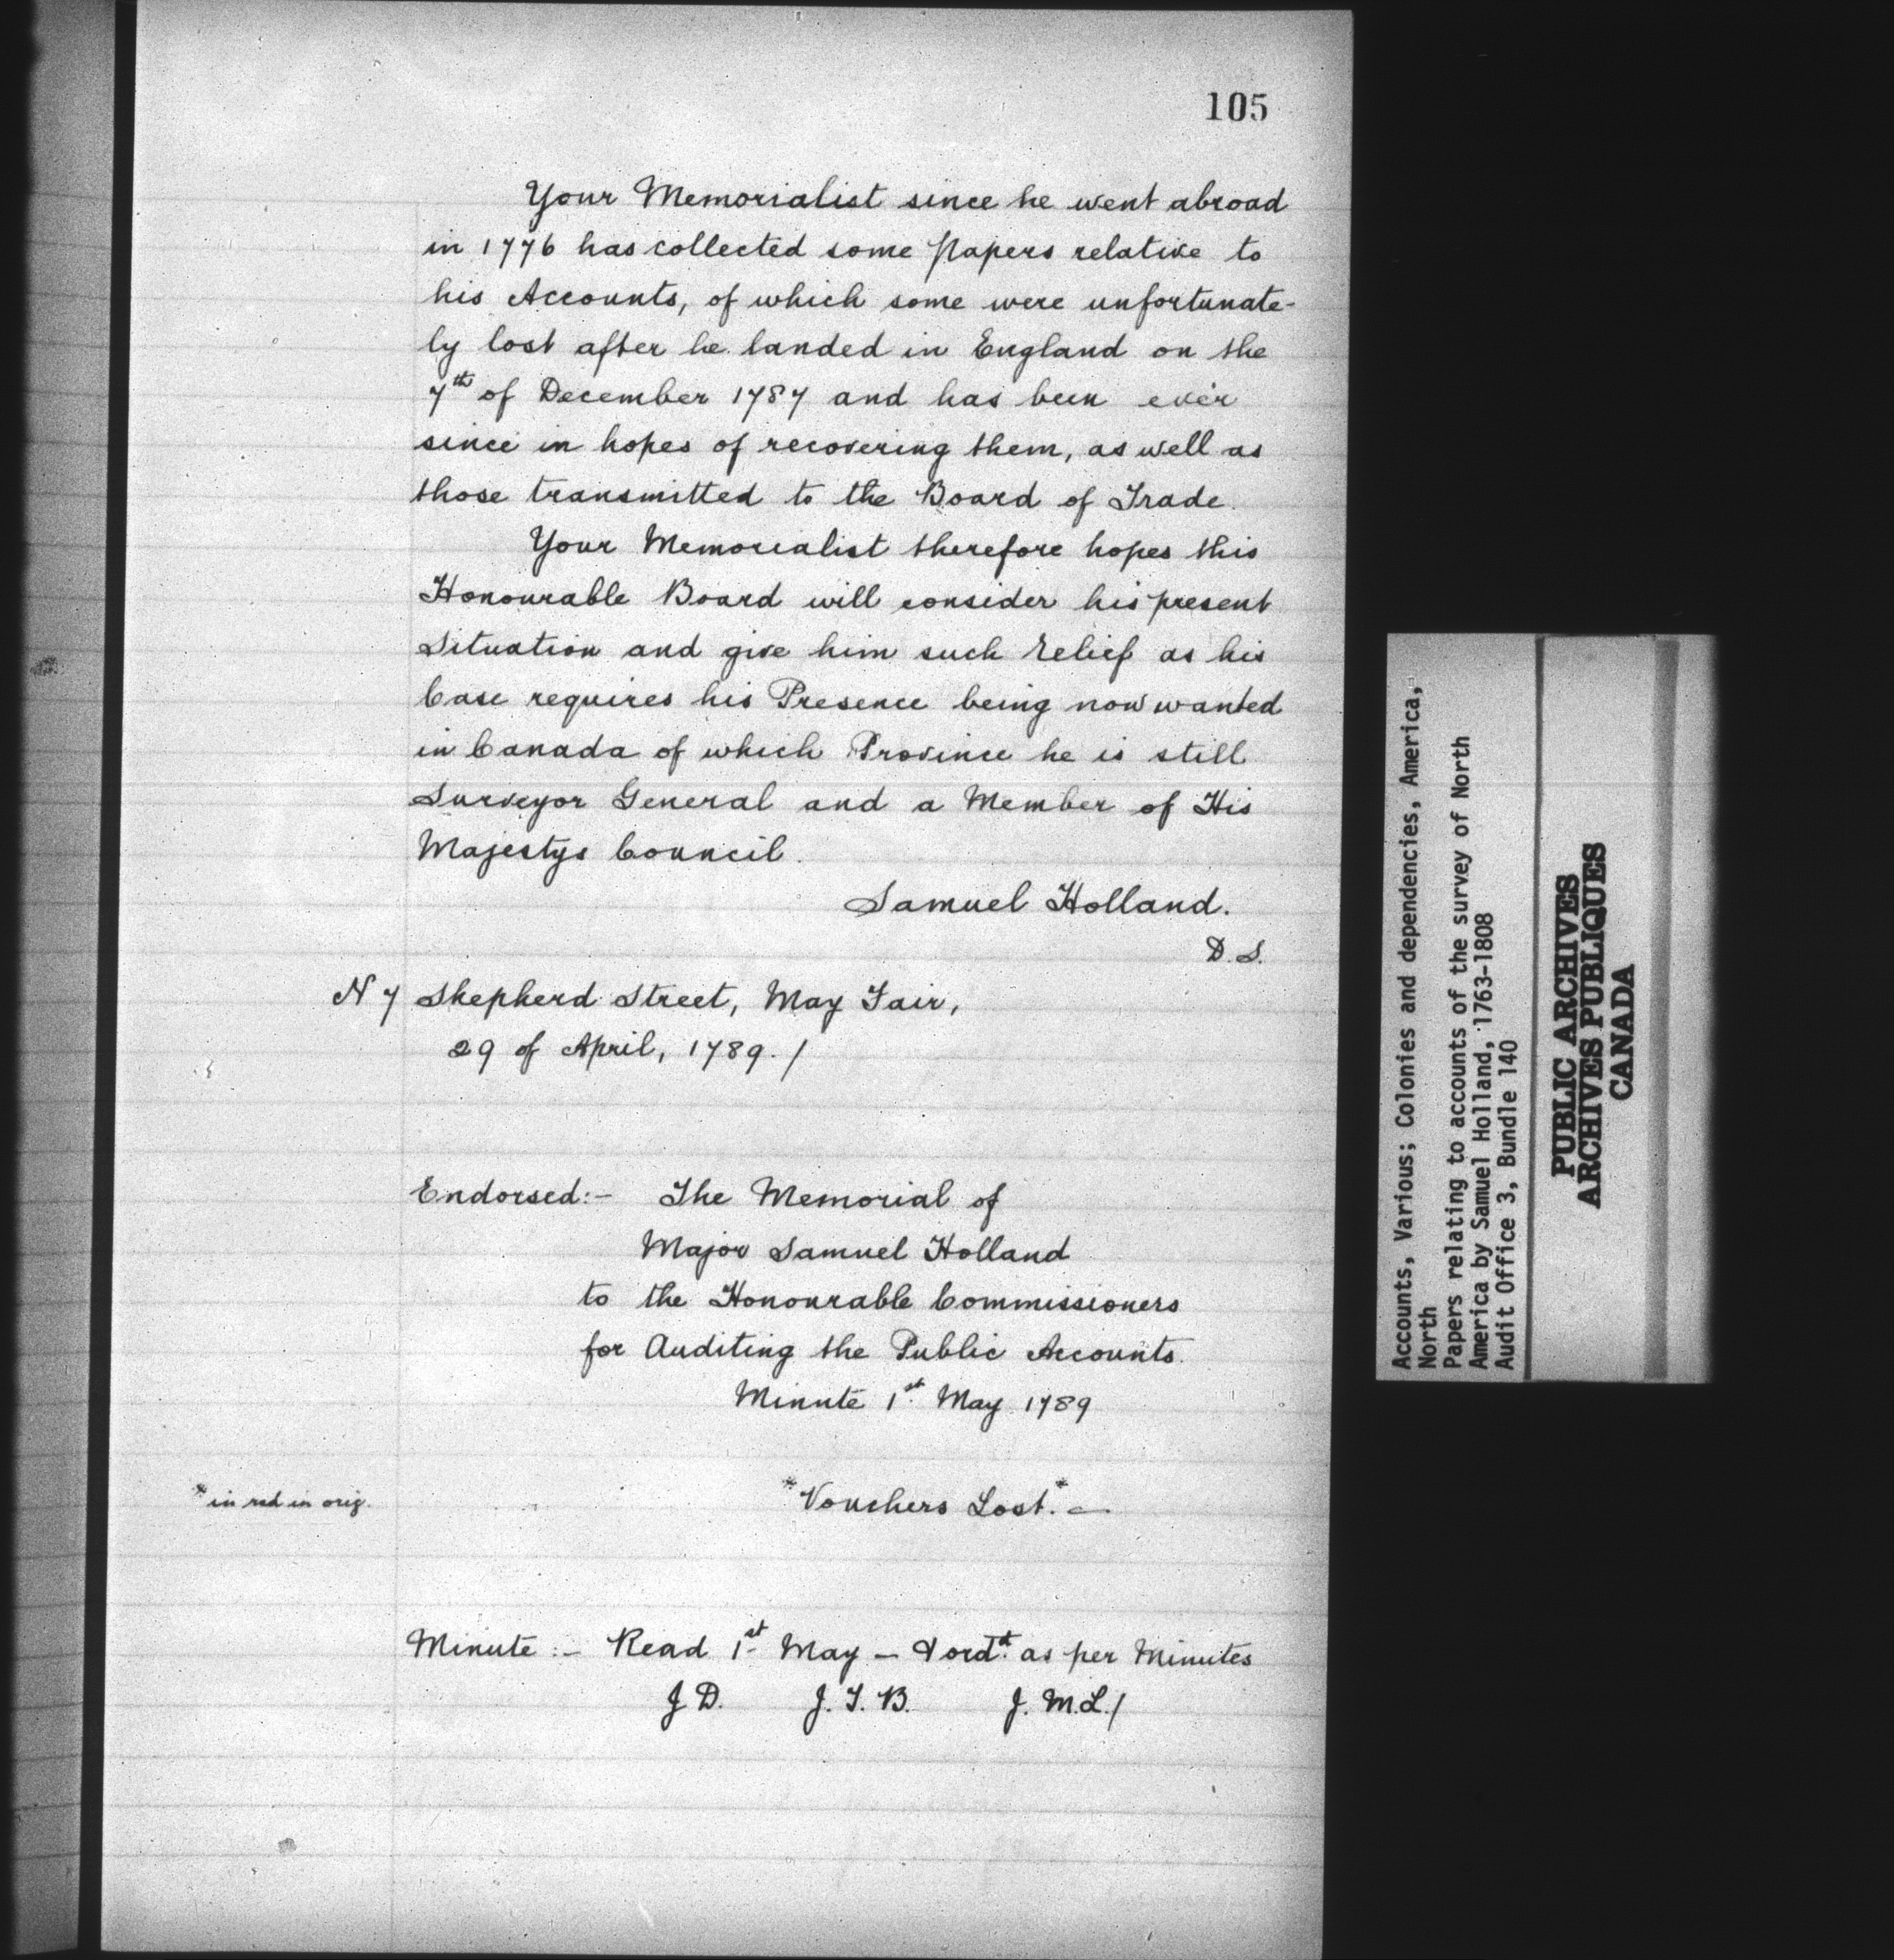 105
Your Memorialist since he went abroad
in 1776 has collected some Papers relative to
his Accounts, of which some were unfortunate-
ly lost after he landed in England on the
7th of December 1787 and has been ever
since in hopes of recovering them, as well as
those transmitted to the Board of Trade.
Your Memorialist therefore hopes this
Honourable Board will consider his present
Situation and give him such relief as his
Case requires his Presence being now wanted
in Canada of which Province he is still
Surveyor General and a Member of His
Majestys Council.
Samuel Holland.
D. S.
N 7 Shepherd Street, May Fair,
29 of April, 1789. /
Endorsed:- The Memorial of
Major Samuel Holland
to the Honourable Commissioners
for Auditing the Public Accounts.
Minute 1st May 1789
* in red in orig.
*Vouchers Lost.* -
Minute :- Read 1st May - & ordd. as per Minutes
J D. J. T. B. J. M. L. /
Accounts, Various; Colonies and dependencies, America,
North
Papers relating to accounts of the survey of North
America by Samuel Holland, 1763-1808
Audit Office 3, Bundle 140
PUBLIC ARCHIVES
ARCHIVES PUBLIQUES
CANADA